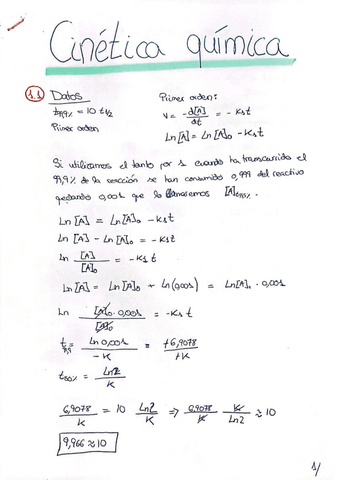 Cinética química
1.1 Datos
t99,9% = 10 t1/2
Primer orden
Primer orden:
V = -d[A]/dt = -K1t
Ln[A] = Ln[A]o - K1t
Si utilizamos el tanto por 1 cuando ha transcurrido el
99,9% de la reacción se han consumido 0,999 del reactivo
quedando 0,001 que lo llamaremos
Ln [A] = Ln[A]o - K1t
Ln [A] - Ln[A]o = -K1t
Ln [A]/[A]o = -K1t
Ln[A] = Ln[A]o + Ln(0,001) = Ln[A]o · 0,001
Ln [A]o · 0,001/[A]o = -K1t
t99,9 = Ln 0,001/-K = +6,9078/+K
t50% = Ln2/K
6,9078/K = 10 Ln2/K ⇒ 6,9078/K K/Ln2 ≈ 10
9,966 ≈ 10
1/